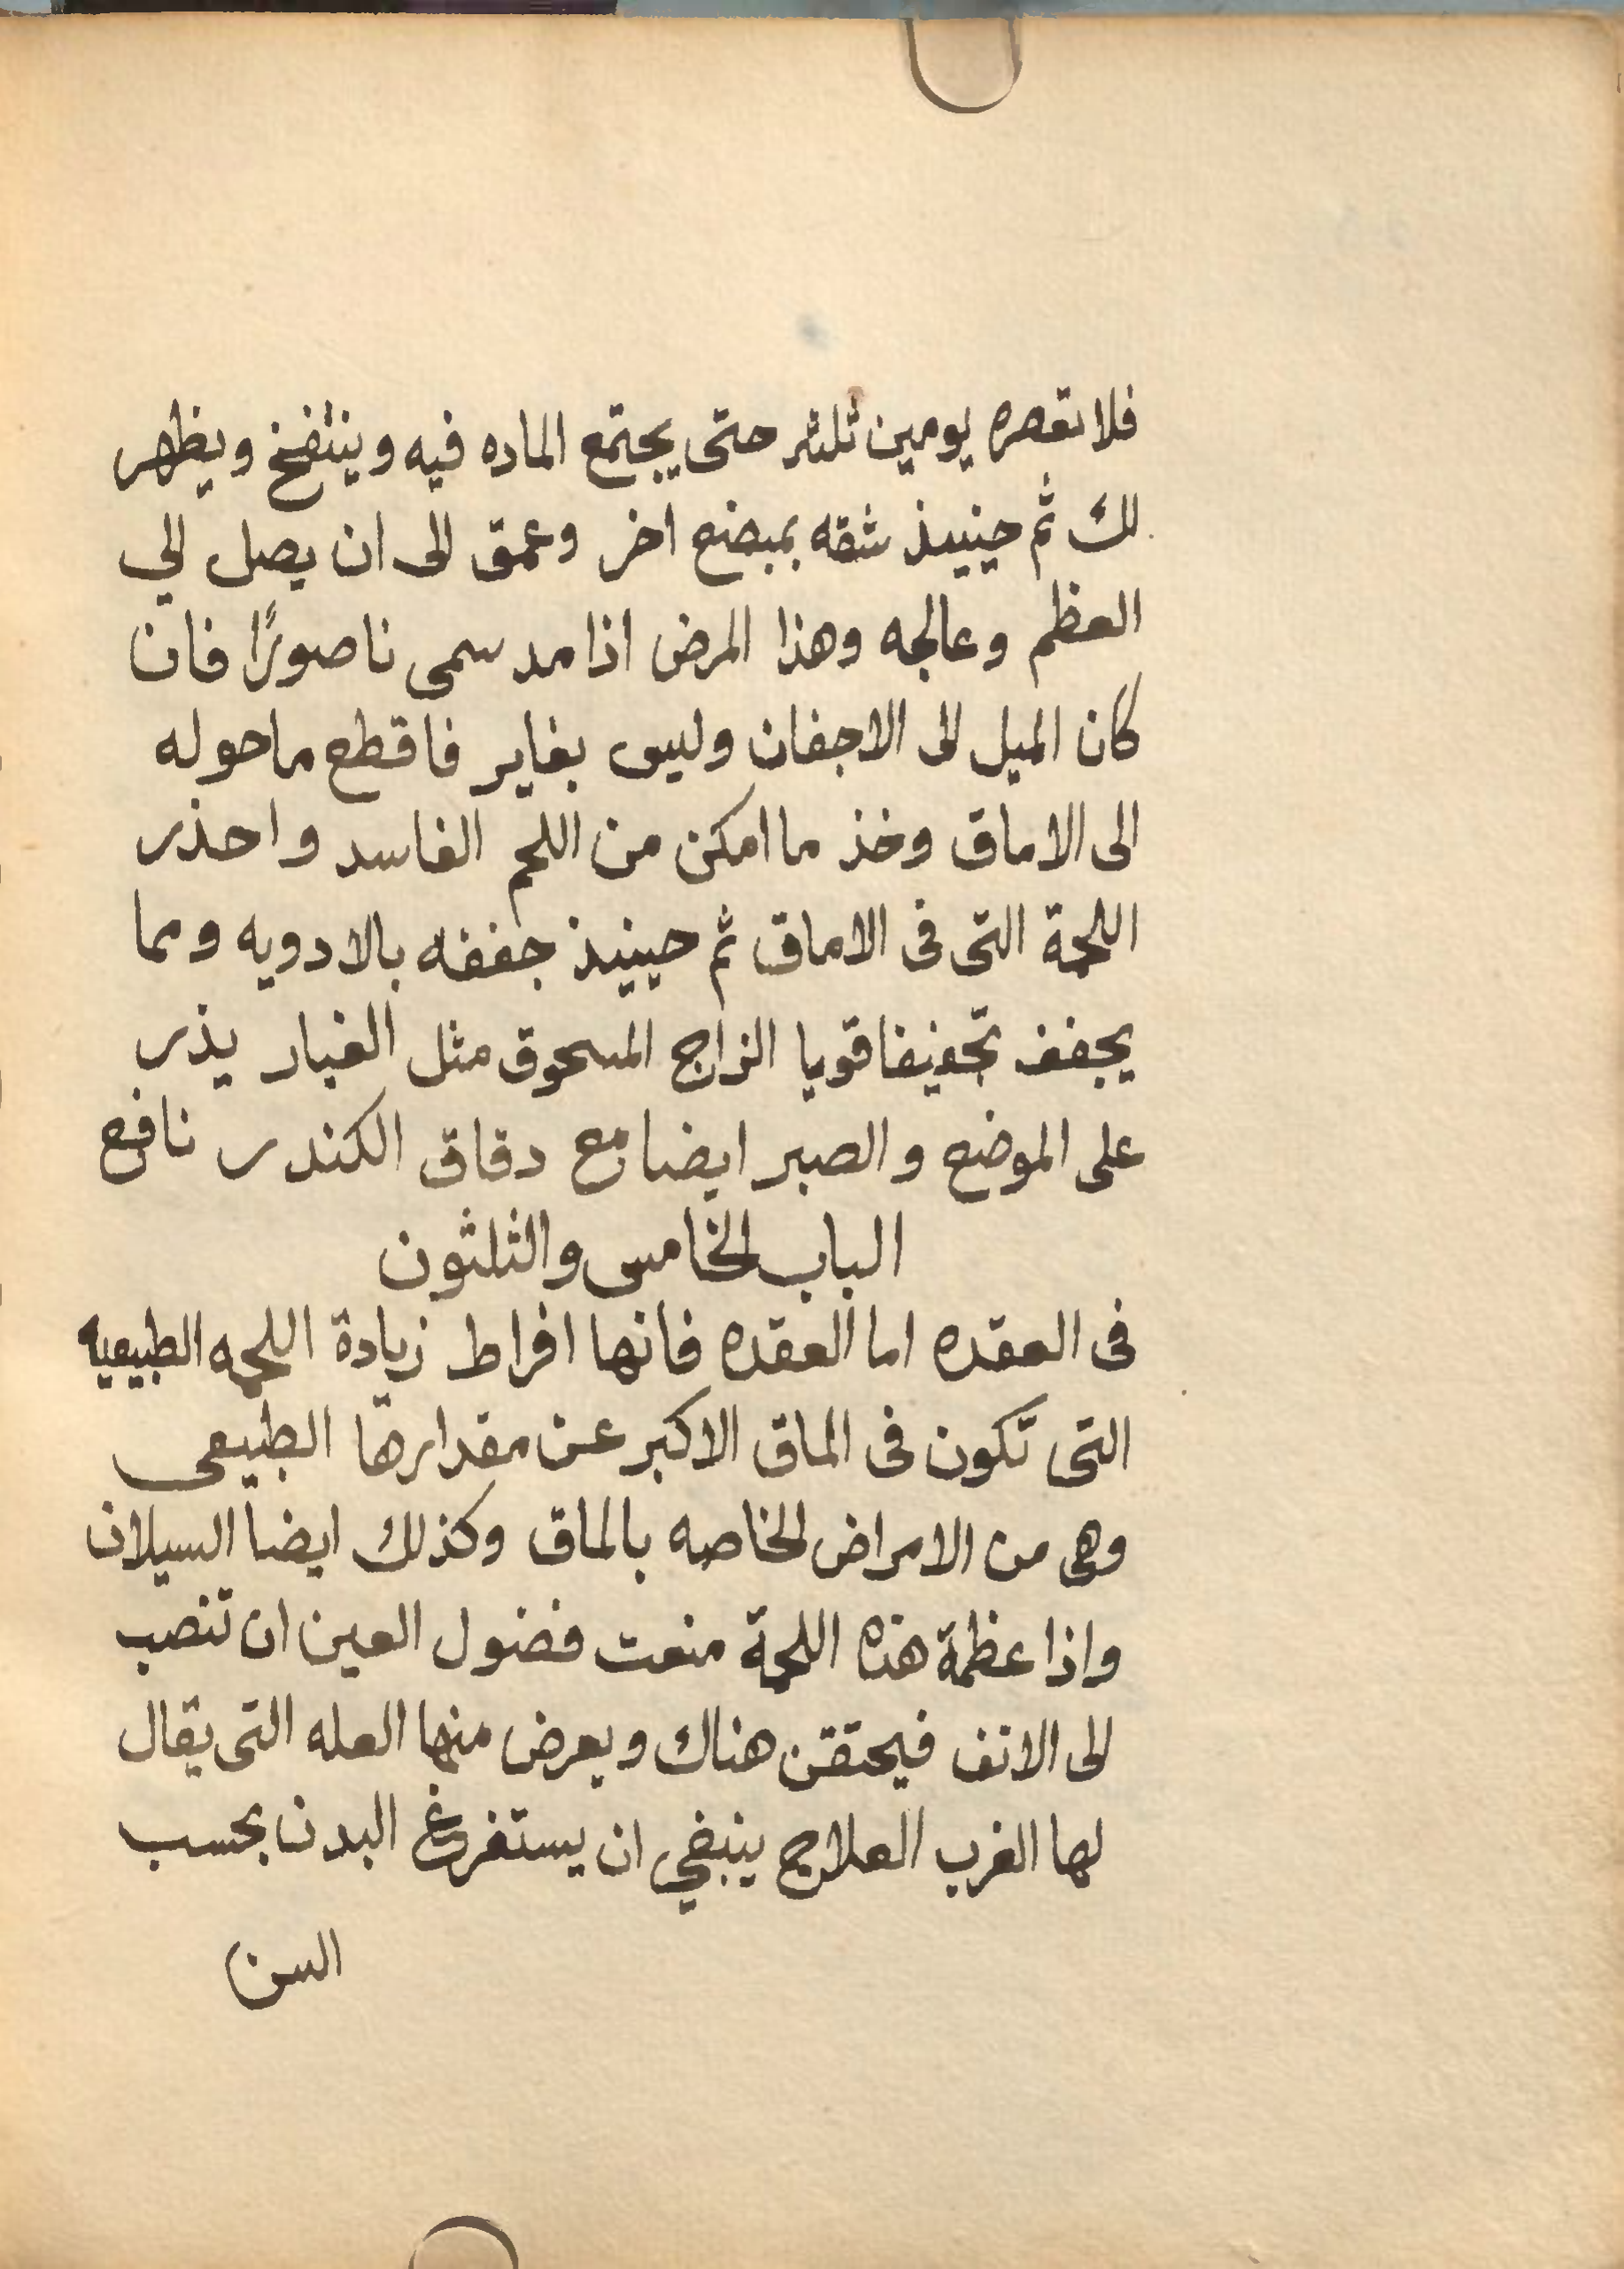 فلا تعصره يومين ثلثر حتى يجتمع الماده فيه وينتفخ ويظهر
لك ثم حينيذ شقه بمبضع اخر وعمق الى ان يصل الي
العظم وعالجه وهذا المرض اذا مد سمى ناصورًا فان
كان الميل الى الاجفان وليس بغاير فاقطع ماحوله
الى الاماق وخذ ما امكن من اللحم الفاسد واحذر
اللحمة التى فى الاماق ثم حينيذ جففه بالادويه ومما
يجفف تجفيفا قويا الزاج المسحوق مثل الغبار يذر
على الموضع والصبر ايضا مع دقاق الكندر نافع
الباب الخامس والثلثون
فى العقده اما العقده فانها افراط زيادة اللحمه الطبيعيه
التى تكون فى الماق الاكبر عن مقدارها الطبيعى
وهى من الامراض الخاصه بالماق وكذلك ايضا السيلان
واذا عظمة هذه اللحمة منعت فضول العين ان تنصب
الى الانف فيحتقن هناك ويعرض منها العله التى يقال
لها الغرب العلاج ينبغي ان يستفرغ البدن بحسب
السن